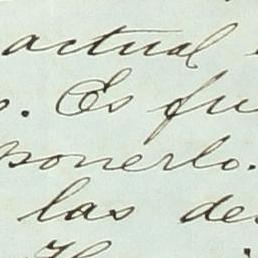 actual
. Es fu
ponerlo.
las de